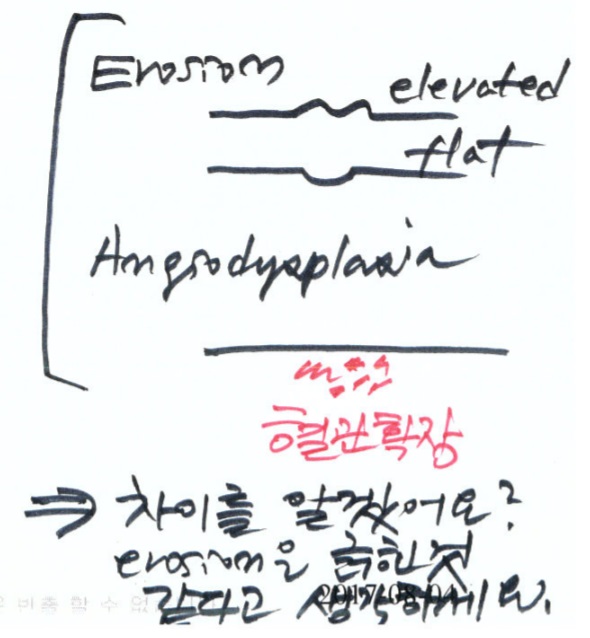 Erosion
elevated
flat
Angiodysplasia
혈관확장
⇒ 차이를 알겠어요?
erosion은 긁힌것
같다고 생각하세요.